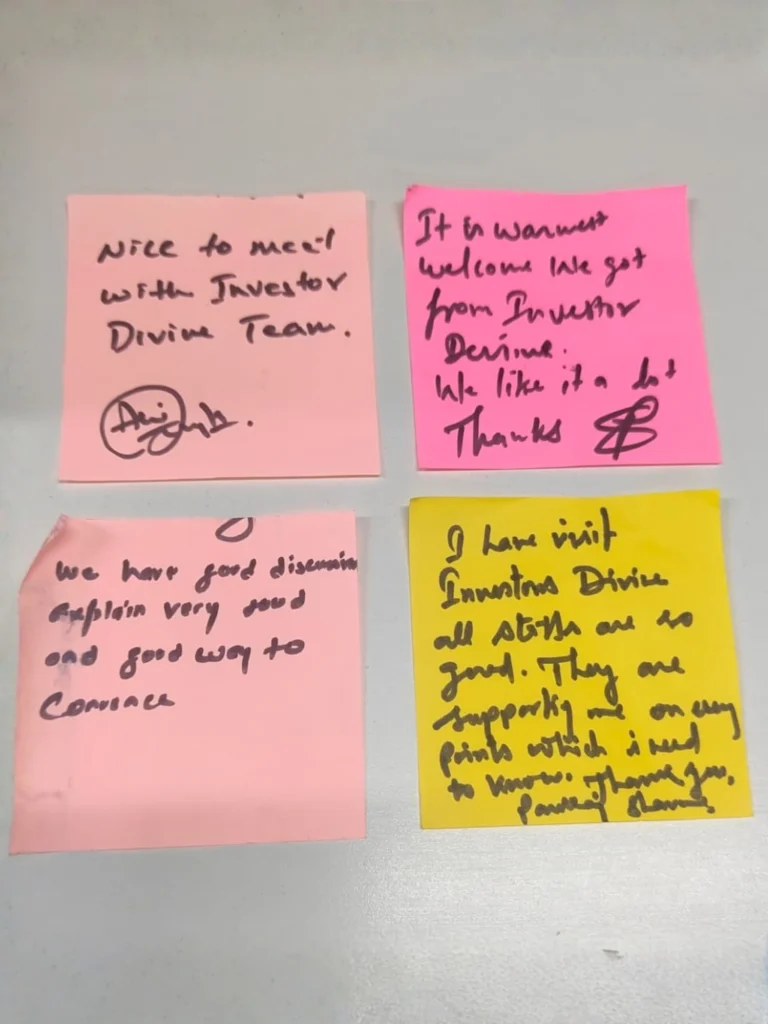 Nice to meet
with Investor
Divine Team.
It is warmest
welcome We got
from Investor
Devine.
We like it a lot
Thanks
We have good discussion
explain very good
and good way to
Convence
I have visit
Investors Divine
all staffs are so
good. They are
supporting me on every
points which i need
to know. Thank you.
Pankaj Sharma